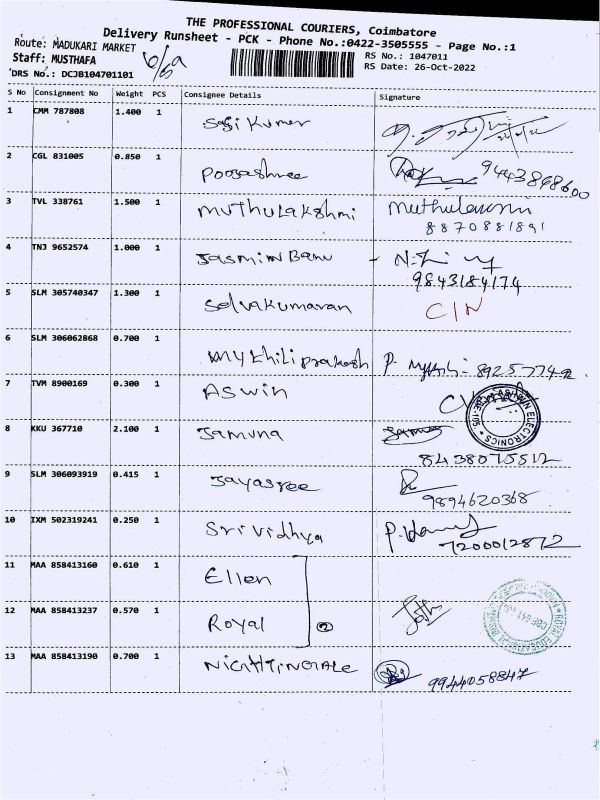 THE PROFESSIONAL COURIERS, Coimbatore
Delivery Runsheet - PCK - Phone No.:0422-3505555 - Page No.:1
Route: MADUKARI MARKET
Staff: MUSTHAFA
DRS No.: DCJB104701101
RS No.: 1047011
RS Date: 26-Oct-2022
S No Consignment No Weight PCS Consignee Details Signature
1 CMM 787808 1.400 1 Sasi Kumar
2 CGL 831005 0.850 1 Poojashree 9443868600
3 TVL 338761 1.500 1 Muthulakshmi
8870881891
4 TNJ 9652574 1.000 1 Jasmin Banu
9843184174
5 SLM 305740347 1.300 1 Selvakumaran C/N
6 SLM 306062868 0.700 1 Mykhiliprakash
7 TVM 8900169 0.300 1 Aswin
8 KKU 367710 2.100 1 Jamuna
8438075512
9 SLM 306093919 0.415 1 Jayasree
9894620368
10 IXM 502319241 0.250 1 Srividhya
7200012872
11 MAA 858413160 0.610 1 Ellen
12 MAA 858413237 0.570 1 Royal 2
13 MAA 858413190 0.700 1 Nightingale
9944058847